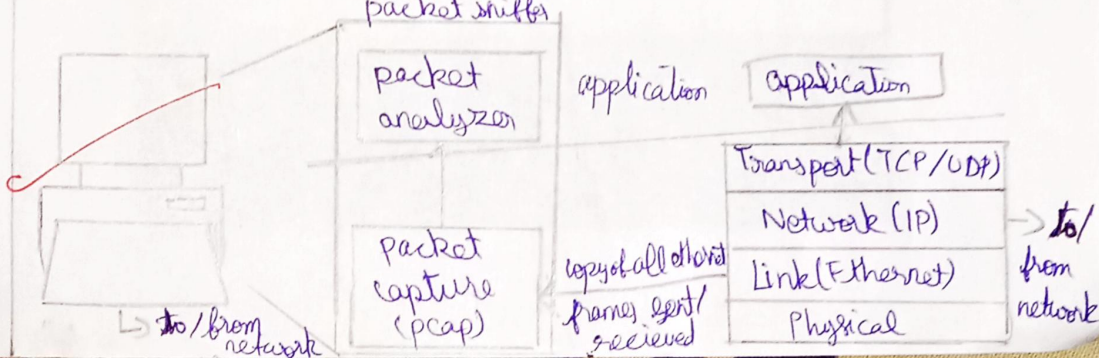 packet sniffer
packet
analyzer
application
application
Transport(TCP/UDP)
Network(IP)
Link(Ethernet)
Physical
to/
from
network
packet
capture
(pcap)
copy of all ethernet
frames sent/
recieved
to/from
network